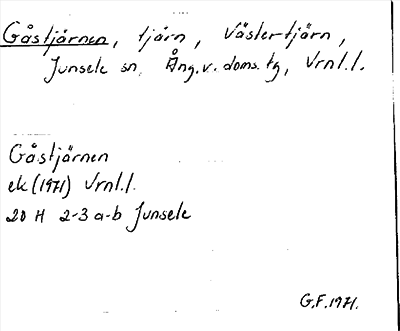 Gåstjärnen, tjärn, Västertjärn,
Junsele sn, Ång.v. doms.tg, Vrnl.l.
Gåstjärnen
ek (1971) Vrnl.l.
20 H 2-3 a-b Junsele
G.F. 1971.